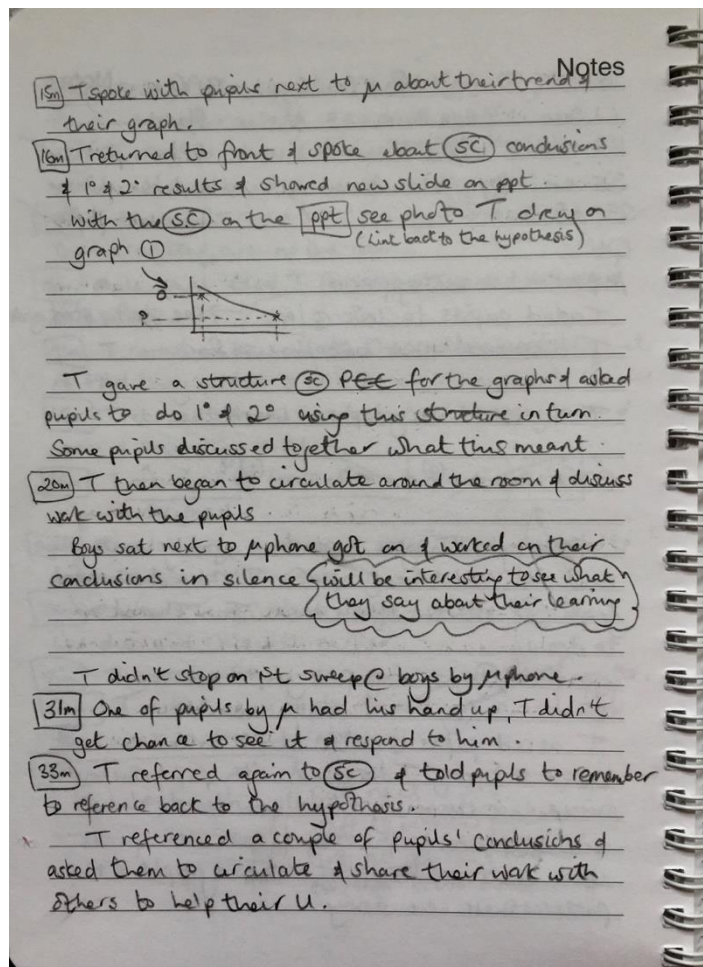 Notes
15m T spoke with pupils next to μ about their trend &
their graph.
16m T returned to front & spoke about SC conclusions
& 1° & 2° results & showed new slide on ppt.
with the SC on the ppt see photo T drew on
(link back to the hypothesis)
graph ①
T gave a structure SC PEE for the graphs & asked
pupils to do 1° & 2° using this structure in turn.
Some pupils discussed together what this meant.
20m T then began to circulate around the room & discuss
work with the pupils.
Boys sat next to μphone got on & worked on their
conclusions in silence will be interesting to see what
they say about their learning
T didn't stop on 1st sweep @ boys by μphone.
31m One of pupils by μ had his hand up, T didn't
get chance to see it & respond to him.
33m T referred again to SC & told pupils to remember
to reference back to the hypothesis.
T referenced a couple of pupils' conclusions &
asked them to circulate & share their work with
others to help their U.